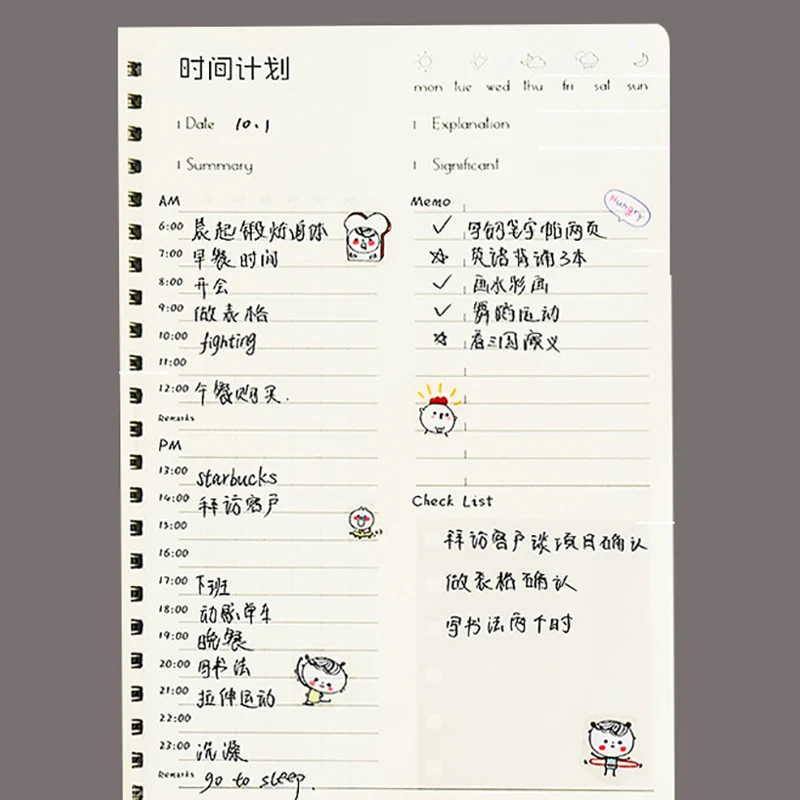 时间计划
mon tue wed thu fri sat sun
Date 10.1
Explanation
Summary
Significant
AM
6:00 晨起锻炼身体
7:00 早餐时间
8:00 开会
9:00 做表格
10:00 fighting
11:00
12:00 午餐购买.
Remarks
PM
13:00 starbucks
14:00 拜访客户
15:00
16:00
17:00 下班
18:00 动感单车
19:00 晚餐
20:00 写书法
21:00 拉伸运动
22:00
23:00 洗澡
Remarks go to sleep.
Memo
Hungry
写钢笔字帖两页
英语背诵3本
画水彩画
舞蹈运动
看三国演义
Check List
拜访客户谈项目确认
做表格确认
写书法两个时